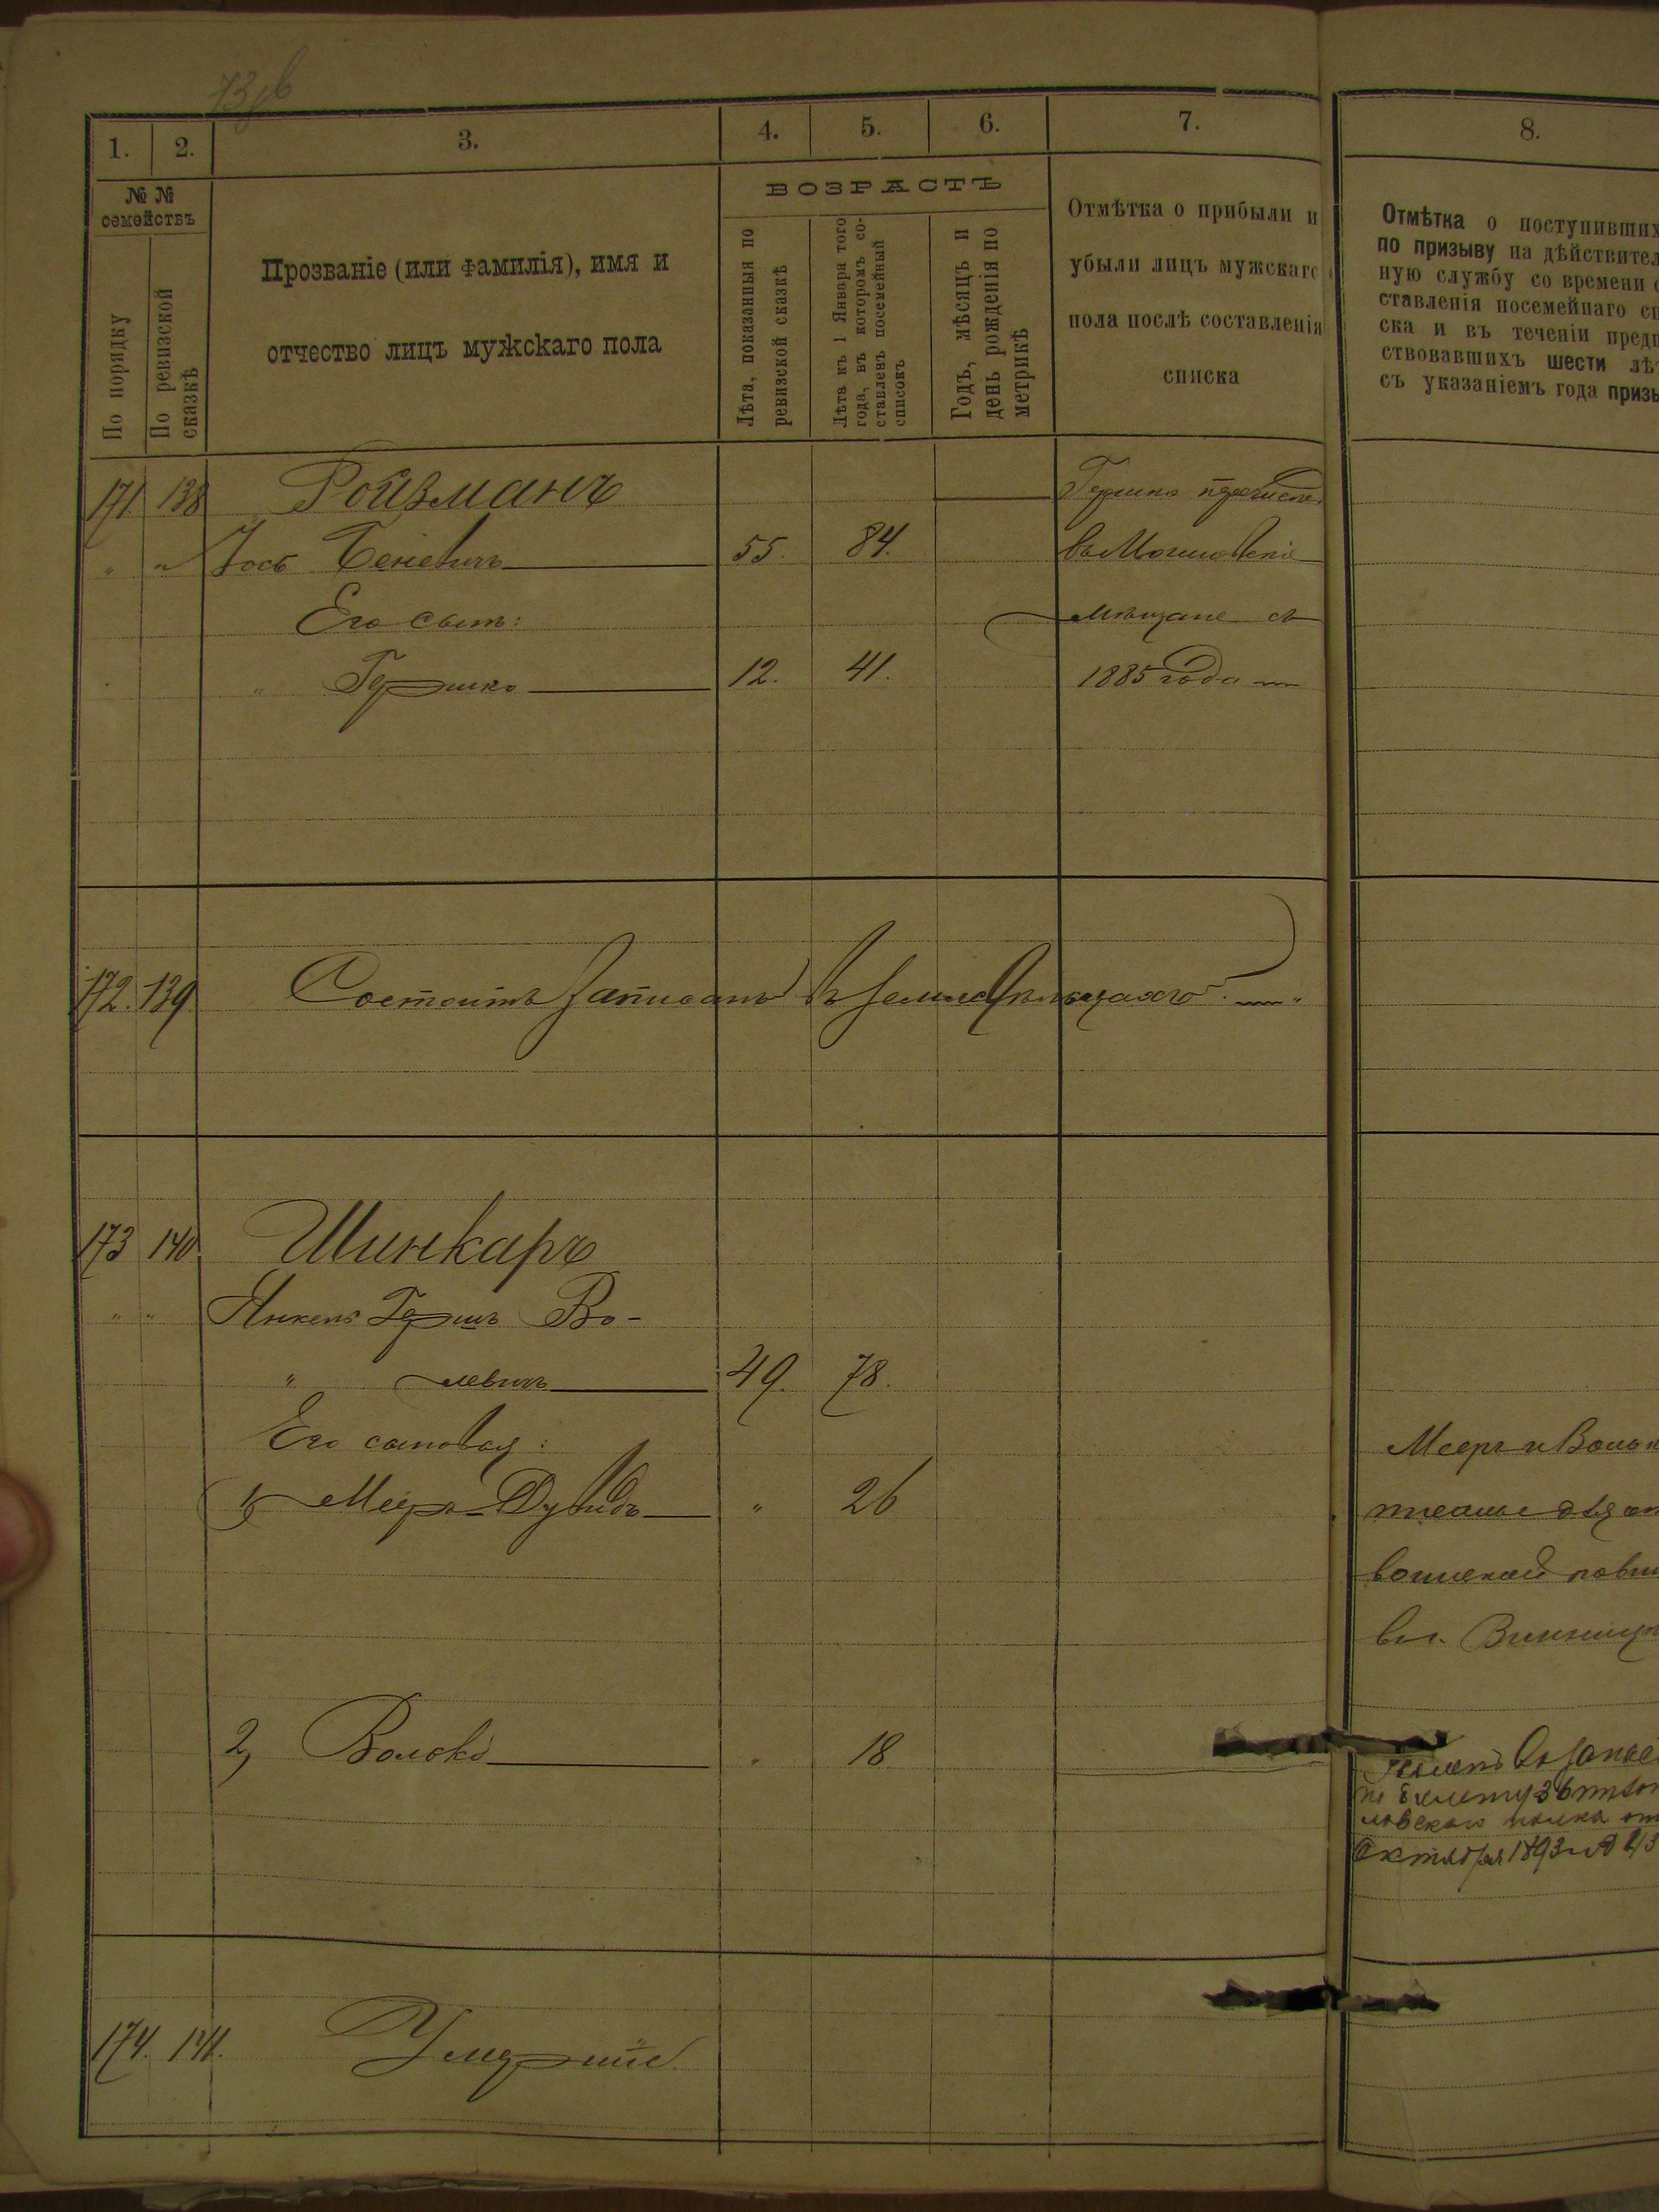 1. 2. 3. 4. 5. 6. 7. 8.
№ №
семействъ
По порядку
По ревизской
сказкѣ
Прозваніе (или фамилія), имя и
отчество лицъ мужскаго пола
ВОЗРАСТЪ
Лѣта, показанныя по
ревизской сказкѣ
Лѣта къ 1 Января того
года, въ которомъ со-
ставленъ посемейный
списокъ
Годъ, мѣсяцъ и
день рожденія по
метрикѣ
Отмѣтка о прибыли и
убыли лицъ мужскаго
пола послѣ составленія
списка
Отмѣтка о поступивших
по призыву на дѣйствител
ную службу со времени с
ставленія посемейнаго сп
ска и въ теченіи предш
ствовавшихъ шести лѣт
съ указаніемъ года призы
171 138 Ройзманъ
" " Іось Беневичъ 55. 84.
Его сынъ:
" Гершко 12. 41.
Гершко
въ
мѣщане съ
1885 года
172. 139 Состоитъ записанъ въ
173 140. Шинкаръ
" " Янкель Гершъ Во-
" левичъ 49. 78.
Его сыновья:
1, Мееръ-Дувидъ " 26
2, Волько " 18
Мееръ и Вольк
воинской повин
въ г. Винниц
Октября 1893 г №
174. 141. Умершіе